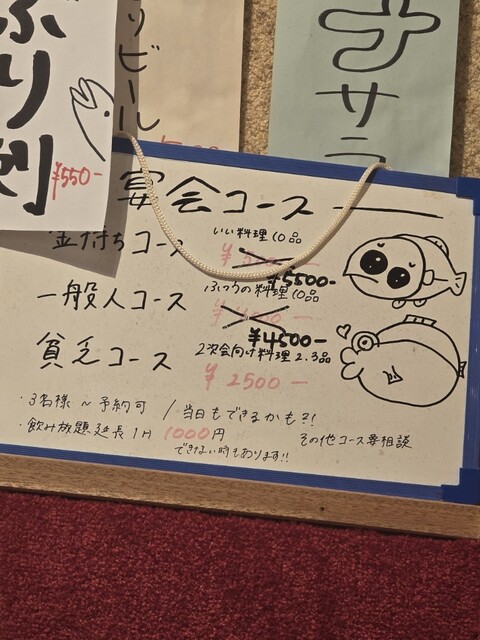 ぶり刺
¥550-
リビール
サラ
宴会コース
金持ちコース
いい料理10品
¥5500-
一般人コース
ふつうの料理10品
¥4500-
貧乏コース
2次会向け料理2.3品
¥2500-
・3名様〜予約可 / 当日もできるかも?!
・飲み放題延長1H 1000円
できない時もあります!!
その他コース要相談